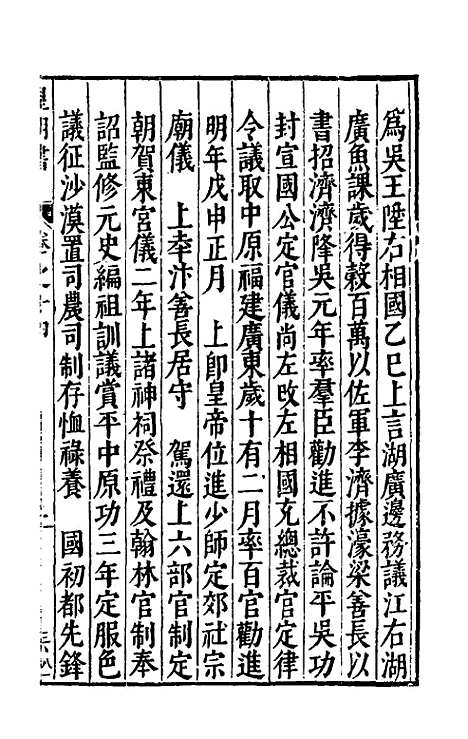 爲吳王陞右相國乙巳上言湖廣邊務議江右湖
廣魚課歲得穀百萬以佐軍李濟據濠梁善長以
書招濟濟降吳元年率羣臣勸進不許論平吳功
封宣國公定官儀尚左改左相國充總裁官定律
令議取中原福建廣東歲十有二月率百官勸進
明年戊申正月　上卽皇帝位進少師定郊社宗
廟儀　上幸汴善長居守　駕還上六部官制定
朝賀東宮儀二年上諸神祠祭禮及翰林官制奉
詔監修元史編祖訓議賞平中原功三年定服色
議征沙漠置司農司制存恤祿養　國初都先鋒
皇明書　卷之十四